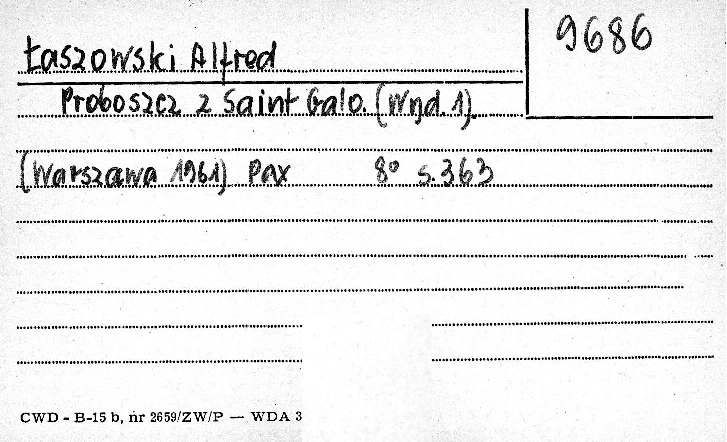 9686
Łaszowski Alfred
Proboszcz z Saint Galo. (Wyd. 1).
(Warszawa 1961) Pax 8° s. 363
CWD - B-15 b, nr 2659/ZW/P — WDA 3